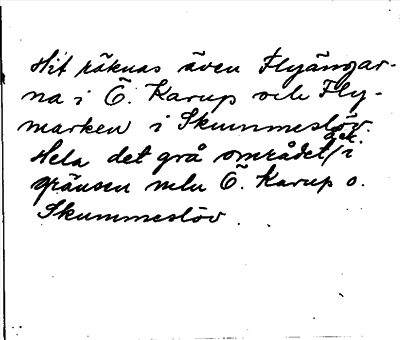 Hit räknas även Flyängar-
na i Ö. Karup och Fly-
marken i Skummeslöv.
Hela det grå området/i
gränsen mln Ö. Karup o.
Skummeslöv.